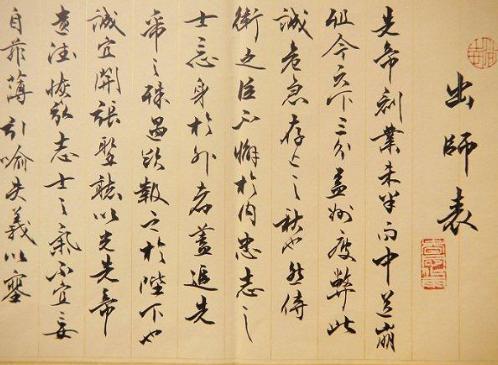 出師表
先帝創業未半而中道崩
殂今天下三分益州疲弊此
誠危急存亡之秋也然侍
衛之臣不懈於內忠志之
士忘身於外者蓋追先
帝之殊遇欲報之於陛下也
誠宜開張聖聽以光先帝
遺德恢弘志士之氣不宜妄
自菲薄引喻失義以塞